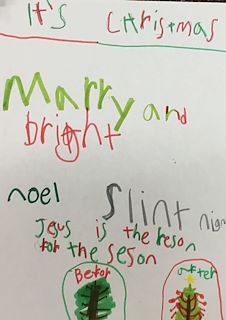 It's Christmas
Marry and
bright
noel Slint nigh
Jeus is the reson
for the seson
Befor after